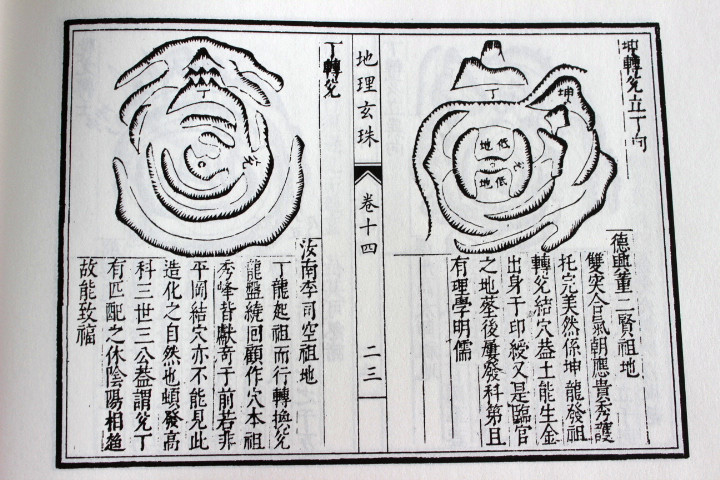 坤轉兌立丁向
丁
坤
低地
低地
德興董二賢祖地
雙突合氣朝應貴秀護
托完美然係坤龍發祖
轉兌結穴葢土能生金
出身于印綬又是臨官
之地塟後屢發科第且
有理學明儒
地理玄珠
卷十四
二三
丁轉兌
丁
兌
汝南李司空祖地
丁龍起祖而行轉換兌
龍盤繞回顧作穴本祖
秀峰皆獻奇于前若非
平岡結穴亦不能見此
造化之自然也頓發高
科三世三公葢謂兌丁
有匹配之休陰陽相
故能致福